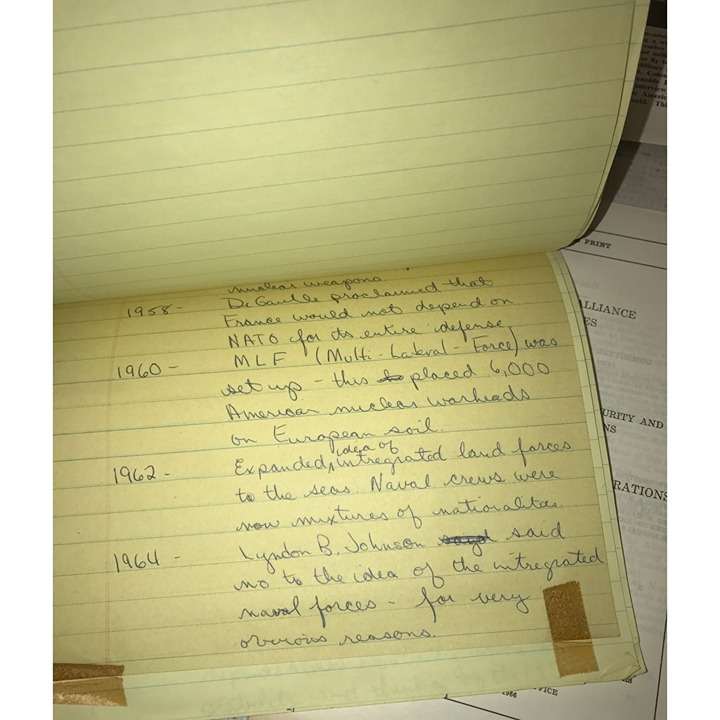 nuclear weapons.
1958 - DeGaulle proclaimed that
France would not depend on
NATO for its entire defense.
1960 - MLF (Multi-Lateral-Force) was
set up - this placed 6,000
American nuclear warheads
on European soil.
idea of
1962 - Expanded, intregrated land forces
to the seas. Naval crews were
now mixtures of nationalites.
1964 - Lyndon B. Johnson said
no to the idea of the intregrated
naval forces - for very
obvious reasons.
PRINT
ALLIANCE
ES
URITY AND
NS
RATIONS
OFFICE
1966